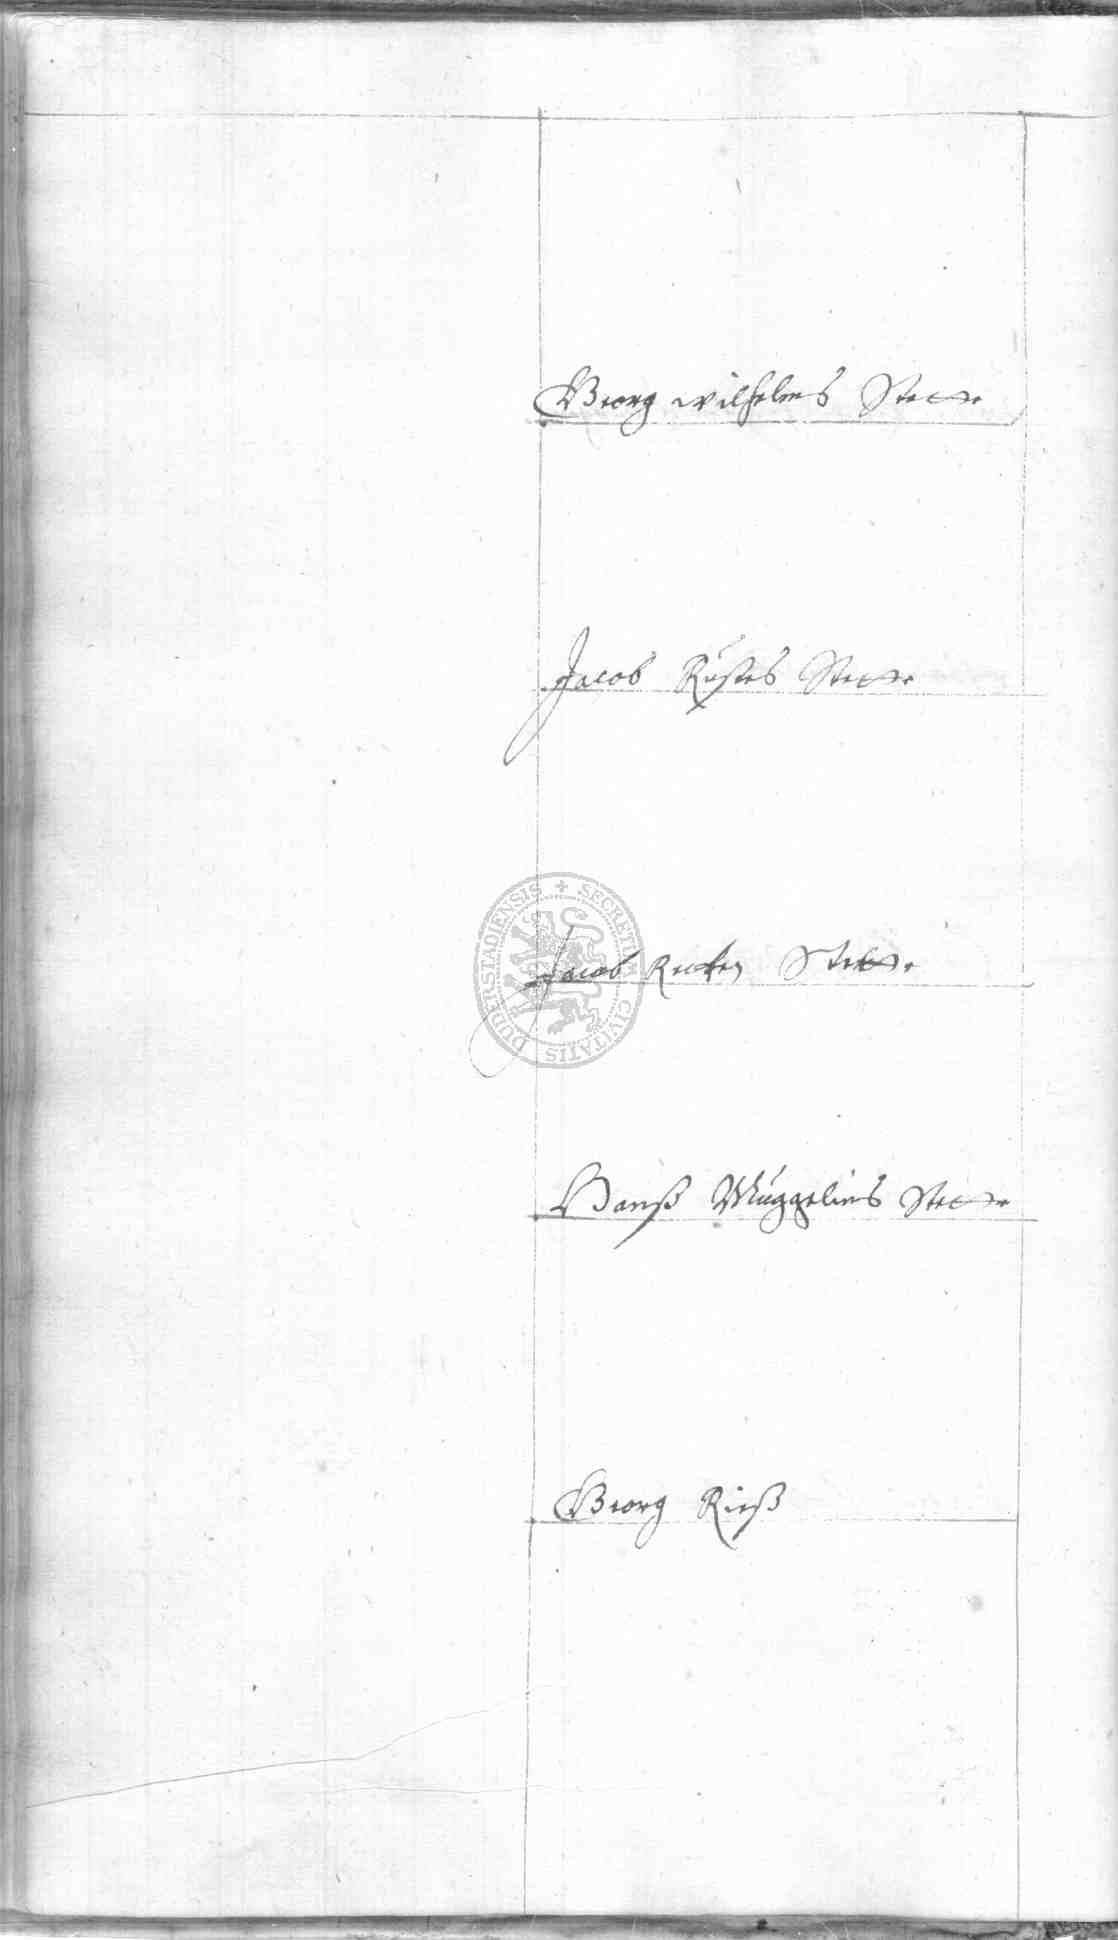 Georg wilhelms Stette
Jacob Rustes Stette
SECRETUM CIVITATIS DUDERSTADIENSIS
Jacob Stette
Hanß Müggelins Stette
Georg Rieß